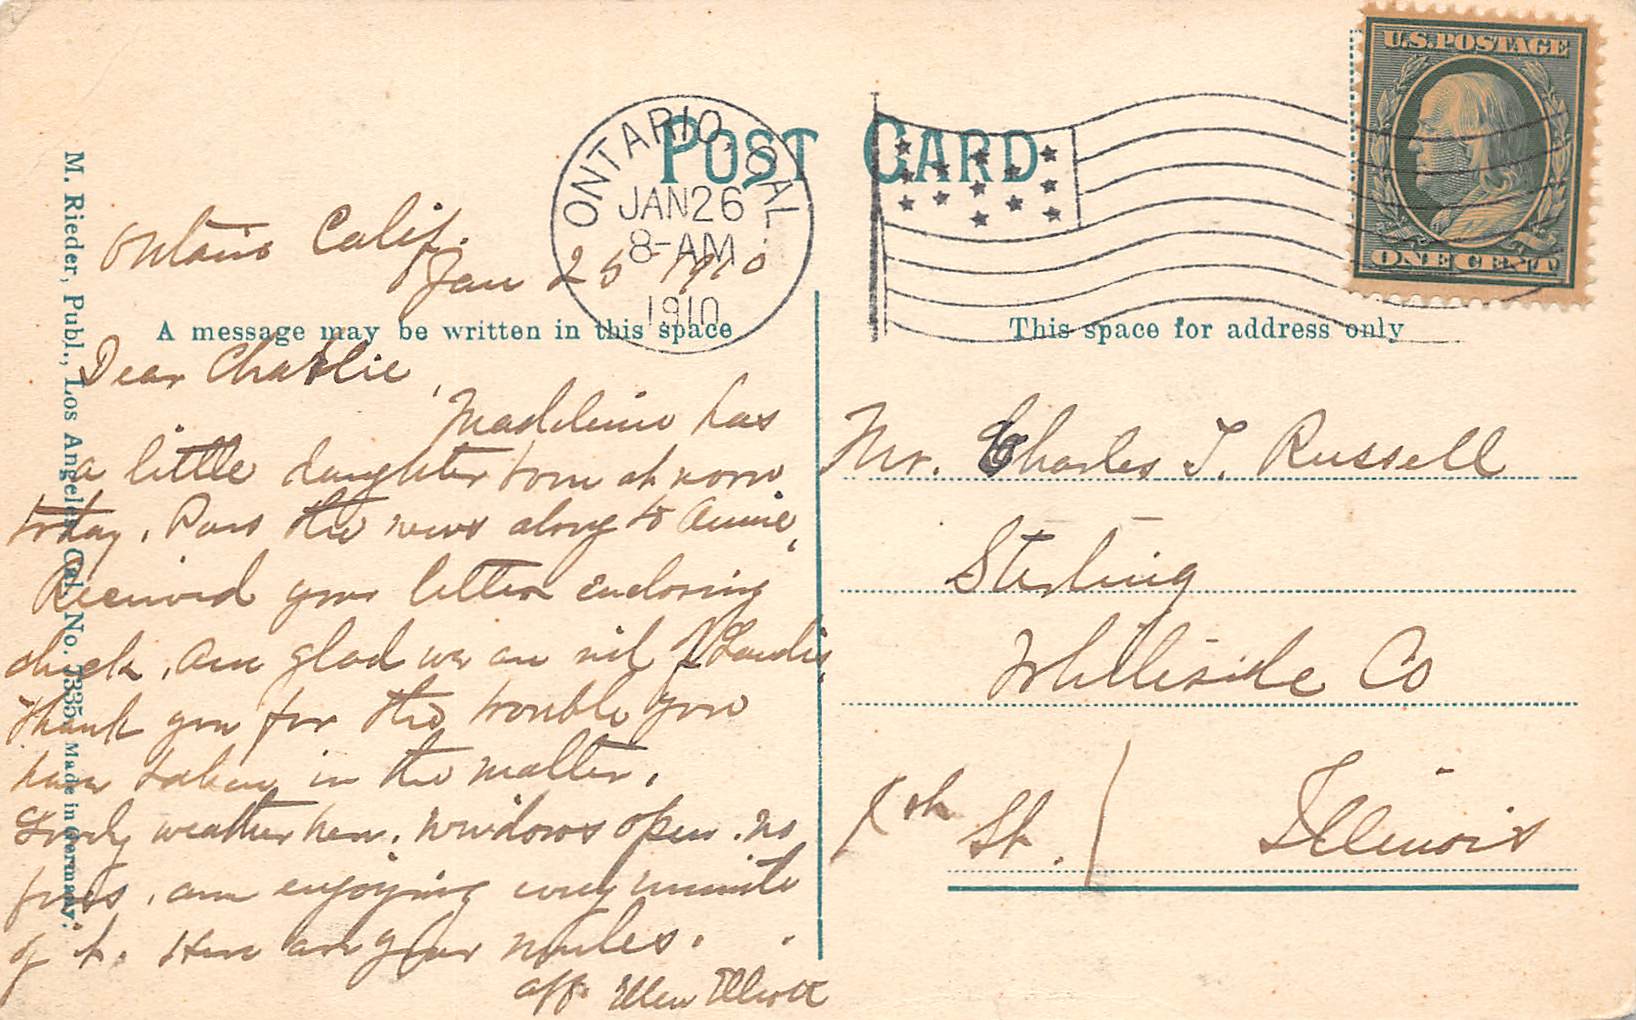 POST CARD
U.S. POSTAGE
ONE CENT
ONTARIO, CAL.
JAN 26
8-AM
1910
Ontario Calif.
Jan 25 1910
A message may be written in this space
Dear Charlie,
Madeline has
a little daughter born at noon
today. Pass the news along to Annie,
Received your letter enclosing
check, am glad we are rid of Landis,
Thank you for the trouble you
have taken in the matter.
Lovely weather here. Windows open. no
fires, am enjoying every minute
of it. Here are your mules.
aff. Ellen Elliott
M. Rieder, Publ., Los Angeles, Cal. No. 7335. Made in Germany.
This space for address only
Mr. Charles T. Russell
Sterling
Whiteside Co
St. Illinois